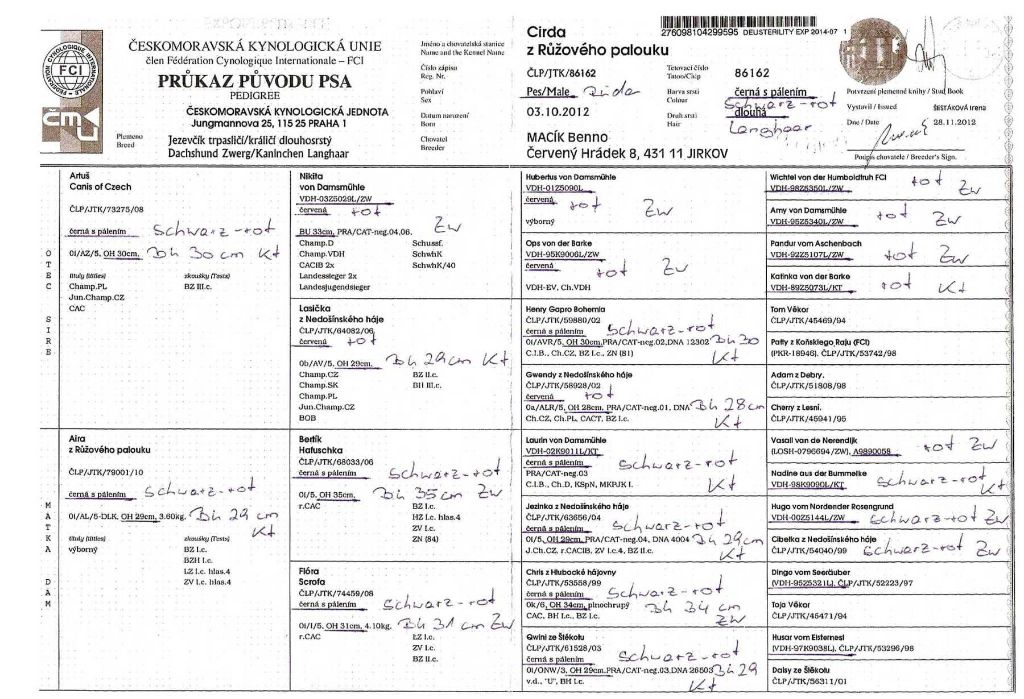 ČESKOMORAVSKÁ KYNOLOGICKÁ UNIE
člen Fédération Cynologique Internationale – FCI
PRŮKAZ PŮVODU PSA
PEDIGREE
ČESKOMORAVSKÁ KYNOLOGICKÁ JEDNOTA
Jungmannova 25, 115 25 PRAHA 1
FCI
čmku
Plemeno
Breed
Jezevčík trpasličí/králičí dlouhosrstý
Dachshund Zwerg/Kaninchen Langhaar
Jméno a chovatelská stanice
Name and the Kennel Name
Cirda
z Růžového palouku
276098104299595 DEUSTERILITY EXP 2014-07 1
Číslo zápisu
Reg. Nr.
ČLP/JTK/86162
Tetovací číslo
Tatoo/Chip
86162
Pohlaví
Sex
Pes/Male
Rüde
Barva srsti
Colour
černá s pálením
Schwarz-rot
Datum narození
Born
03.10.2012
Druh srsti
Hair
dlouhá
Langhaar
Chovatel
Breeder
MACÍK Benno
Červený Hrádek 8, 431 11 JIRKOV
Potvrzení plemenné knihy / Stud Book
Vystavil / Issued
ŠESTÁKOVÁ Irena
Dne / Date
28.11.2012
Podpis chovatele / Breeder's Sign.
OTEC
SIRE
Artuš
Canis of Czech
ČLP/JTK/73275/08
černá s pálením Schwarz-rot
0I/AZ/5, OH 30cm, Bh 30 cm Kt
tituly (titles) zkoušky (Tests)
Champ.PL BZ III.c.
Jun.Champ.CZ
CAC
Nikita
von Damsmühle
VDH-03Z5029L/ZW
červená rot
BU 33cm, PRA/CAT-neg.04,06. Zw
Champ.D Schussf.
Champ.VDH SchwhK
CACIB 2x SchwhK/40
Landessieger 2x
Landesjugendsieger
Lasička
z Nedošínského háje
ČLP/JTK/64082/06
červená rot
0b/AV/5, OH 29cm, Bh 29 cm Kt
Champ.CZ BZ II.c.
Champ.SK BH III.c.
Champ.PL
Jun.Champ.CZ
BOB
Hubertus von Damsmühle
VDH-01Z5090L
červená rot Zw
výborný
Ops von der Barke
VDH-95K9006L/ZW
červená rot Zw
VDH-EV, Ch.VDH
Henry Gapro Bohemia
ČLP/JTK/59880/02
černá s pálením Schwarz-rot
0I/AVR/5, OH 30cm,PRA/CAT-neg.02,DNA 12302 Bh 30
C.I.B., Ch.CZ, BZ I.c., ZN (81) Kt
Gwendy z Nedošínského háje
ČLP/JTK/58928/02
červená rot
0a/ALR/5, OH 28cm, PRA/CAT-neg.01, DNA Bh 28cm
Ch.CZ, Ch.PL, CACT, BZ I.c. Kt
Wichtel von der Humboldtruh FCI
VDH-98Z5350L/ZW rot Zw
Amy von Damsmühle
VDH-95Z5340L/ZW rot Zw
Pandur vom Aschenbach
VDH-92Z5107L/ZW rot Zw
Katinka von der Barke
VDH-89Z5073L/KT rot Kt
Tom Věkor
ČLP/JTK/45469/94
Patty z Końskiego Raju (FCI)
(PKR-18946), ČLP/JTK/53742/98
Adam z Debry.
ČLP/JTK/51808/98
Cherry z Lesní.
ČLP/JTK/45941/95
MATKA
DAM
Aira
z Růžového palouku
ČLP/JTK/79001/10
černá s pálením Schwarz-rot
0I/AL/5-DLK, OH 29cm, 3.60kg. Bh 29 cm Kt
tituly (titles) zkoušky (Tests)
výborný BZ I.c.
BZH I.c.
LZ I.c. hlas.4
ZV I.c. hlas.4
Bertík
Hafuschka
ČLP/JTK/68033/06
černá s pálením Schwarz-rot
0I/5, OH 35cm, Bh 35 cm Zw
r.CAC BZ I.c.
HZ I.c. hlas.4
ZV I.c.
ZN (84)
Flóra
Scrofa
ČLP/JTK/74459/08
černá s pálením Schwarz-rot
0I/I/5, OH 31cm, 4.10kg. Bh 31 cm Zw
r.CAC LZ I.c.
ZV I.c.
BZ II.c.
Laurin von Damsmühle
VDH-02K9011L/KT
černá s pálením Schwarz-rot
PRA/CAT-neg.03
C.I.B., Ch.D, KSpN, MKPJK I. Kt
Jezinka z Nedošínského háje
ČLP/JTK/63656/04
černá s pálením Schwarz-rot
0I/5, OH 29cm, PRA/CAT-neg.04, DNA 4004 Bh 29cm
J.Ch.CZ, r.CACIB, ZV I.c.4, BZ II.c. Kt
Chris z Hlubocké hájovny
ČLP/JTK/53558/99
černá s pálením Schwarz-rot
0k/6, OH 34cm, plnochrupý Bh 34 cm
CAC, BH I.c., BZ I.c. Zw
Qwini ze Štěkotu
ČLP/JTK/61528/03
černá s pálením Schwarz-rot
0I/ONW/3, OH 29cm,PRA/CAT-neg.03,DNA 26503 Bh 29
v.d., "U", BH I.c. Kt
Vasall van de Nerendijk
(LOSH-0796694/ZW), A9890058 rot Zw
Nadine aus der Bummelke
VDH-98K9090L/KT Schwarz-rot Kt
Hugo vom Nordender Rosengrund
VDH-00Z5144L/ZW Schwarz-rot Zw
Cibelka z Nedošínského háje
ČLP/JTK/54040/99 Schwarz-rot Zw
Dingo vom Seeräuber
(VDH-95Z5321L), ČLP/JTK/52223/97
Taja Věkor
ČLP/JTK/45471/94
Husar vom Elsternest
(VDH-97K9038L), ČLP/JTK/53296/98
Daisy ze Štěkotu
ČLP/JTK/56311/01